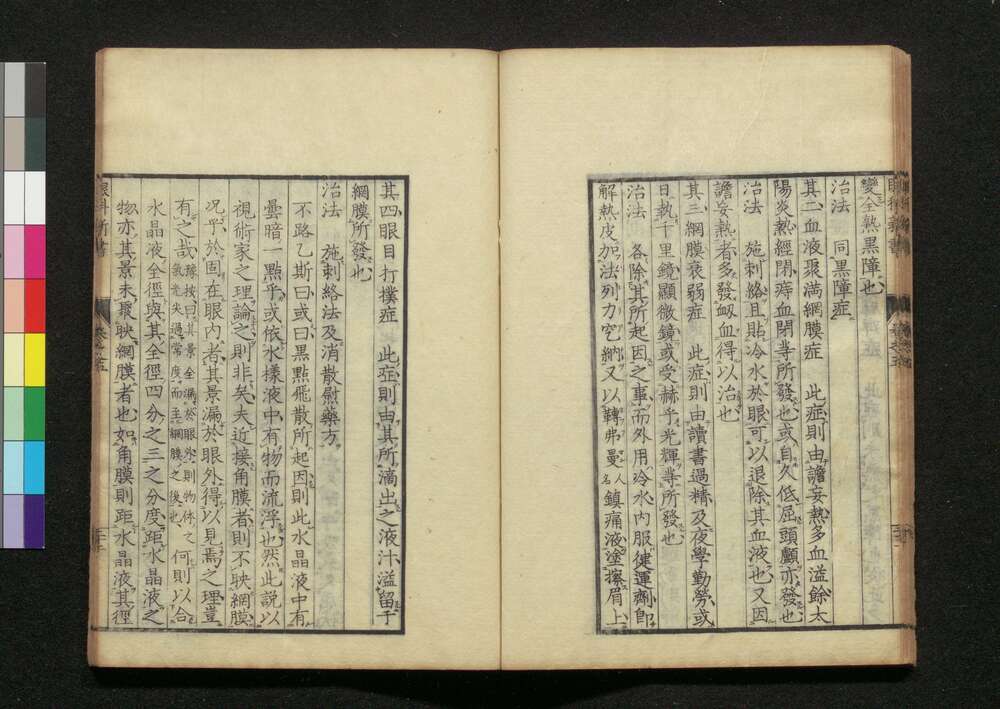 變全熱黒障也
治法　同黒障症
其二血液聚滿網膜症　此症則由譫妄熱多血溢餘太
陽炎熱經閉痔血閉等所發也或自久低屈頭顱亦發也
治法　施刺絡且貼冷水於眼可以退除其血液也又因
譫妄熱者多發衂血得以治也
其三網膜衰弱症　此症則由讀書過精及夜學勤勞或
日執千里鏡顯微鏡或受赫乎光輝等所發也
治法　各除其所起因之事而外用冷水内服健運劑即
解熱皮加法列力窊納又以轉弗曼人名鎮痛液塗擦眉上
其四眼目打撲症　此症則由其所滴出之液汁溢留于
網膜所發也
治法　施刺絡法及消散慰藥方
不路乙斯曰或曰黒點飛散所起因則此水晶液中有
曇暗一點乎或依水樣液中有物而流浮也然此説以
視術家之理論之則非矣夫近接角膜者則不映網膜
况乎於固在眼内者其景漏於眼外得以見焉之理豈
有之哉豫按曰其景全漏於眼外則物体之氣光失過常度而至網膜之後也何則以合
水晶液全徑與其全徑四分之三之分度距水晶液之
物亦其景未聚映網膜者也如角膜則距水晶液其徑
眼科新書
卷之五